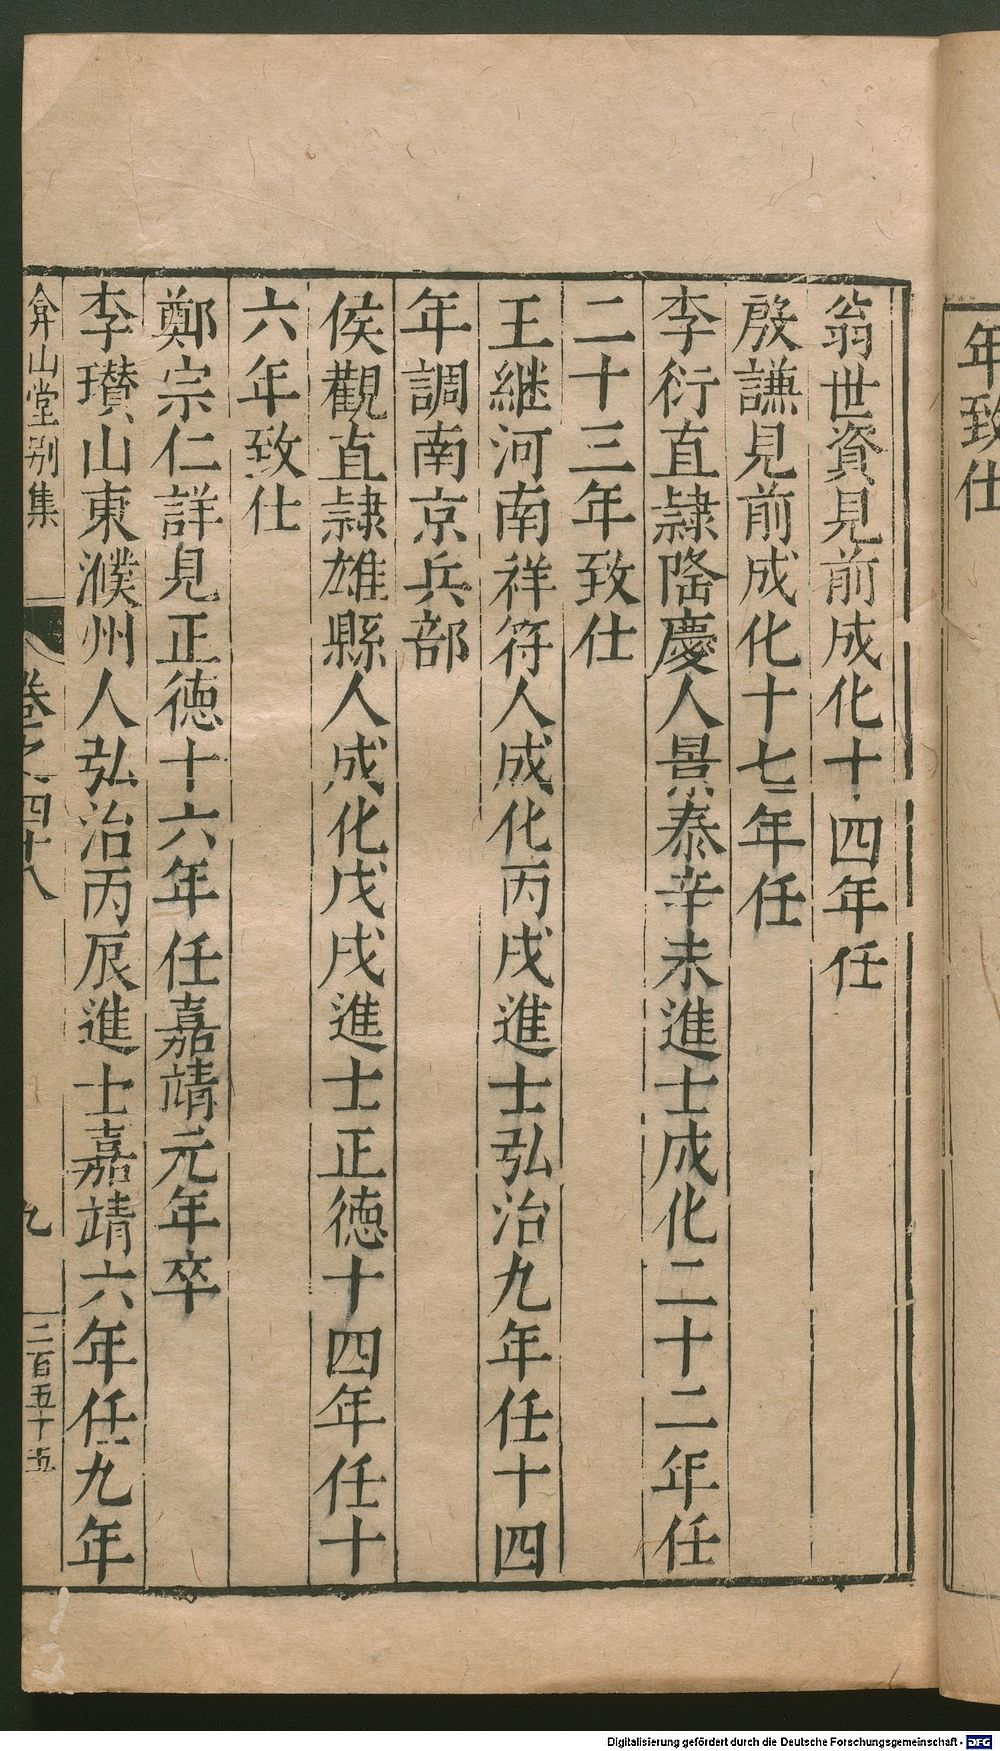 年致仕
翁世資見前成化十四年任
殷謙見前成化十七年任
李衍直隷隆慶人景泰辛未進士成化二十二年任
二十三年致仕
王継河南祥符人成化丙戌進士弘治九年任十四
年調南京兵部
侯觀直隷雄縣人成化戊戌進士正德十四年任十
六年致仕
鄭宗仁詳見正德十六年任嘉靖元年卒
李瓉山東濮州人弘治丙辰進士嘉靖六年任九年
弇山堂别集
卷之四十八
九
二百五十五
Digitalisierung gefördert durch die Deutsche Forschungsgemeinschaft - DFG